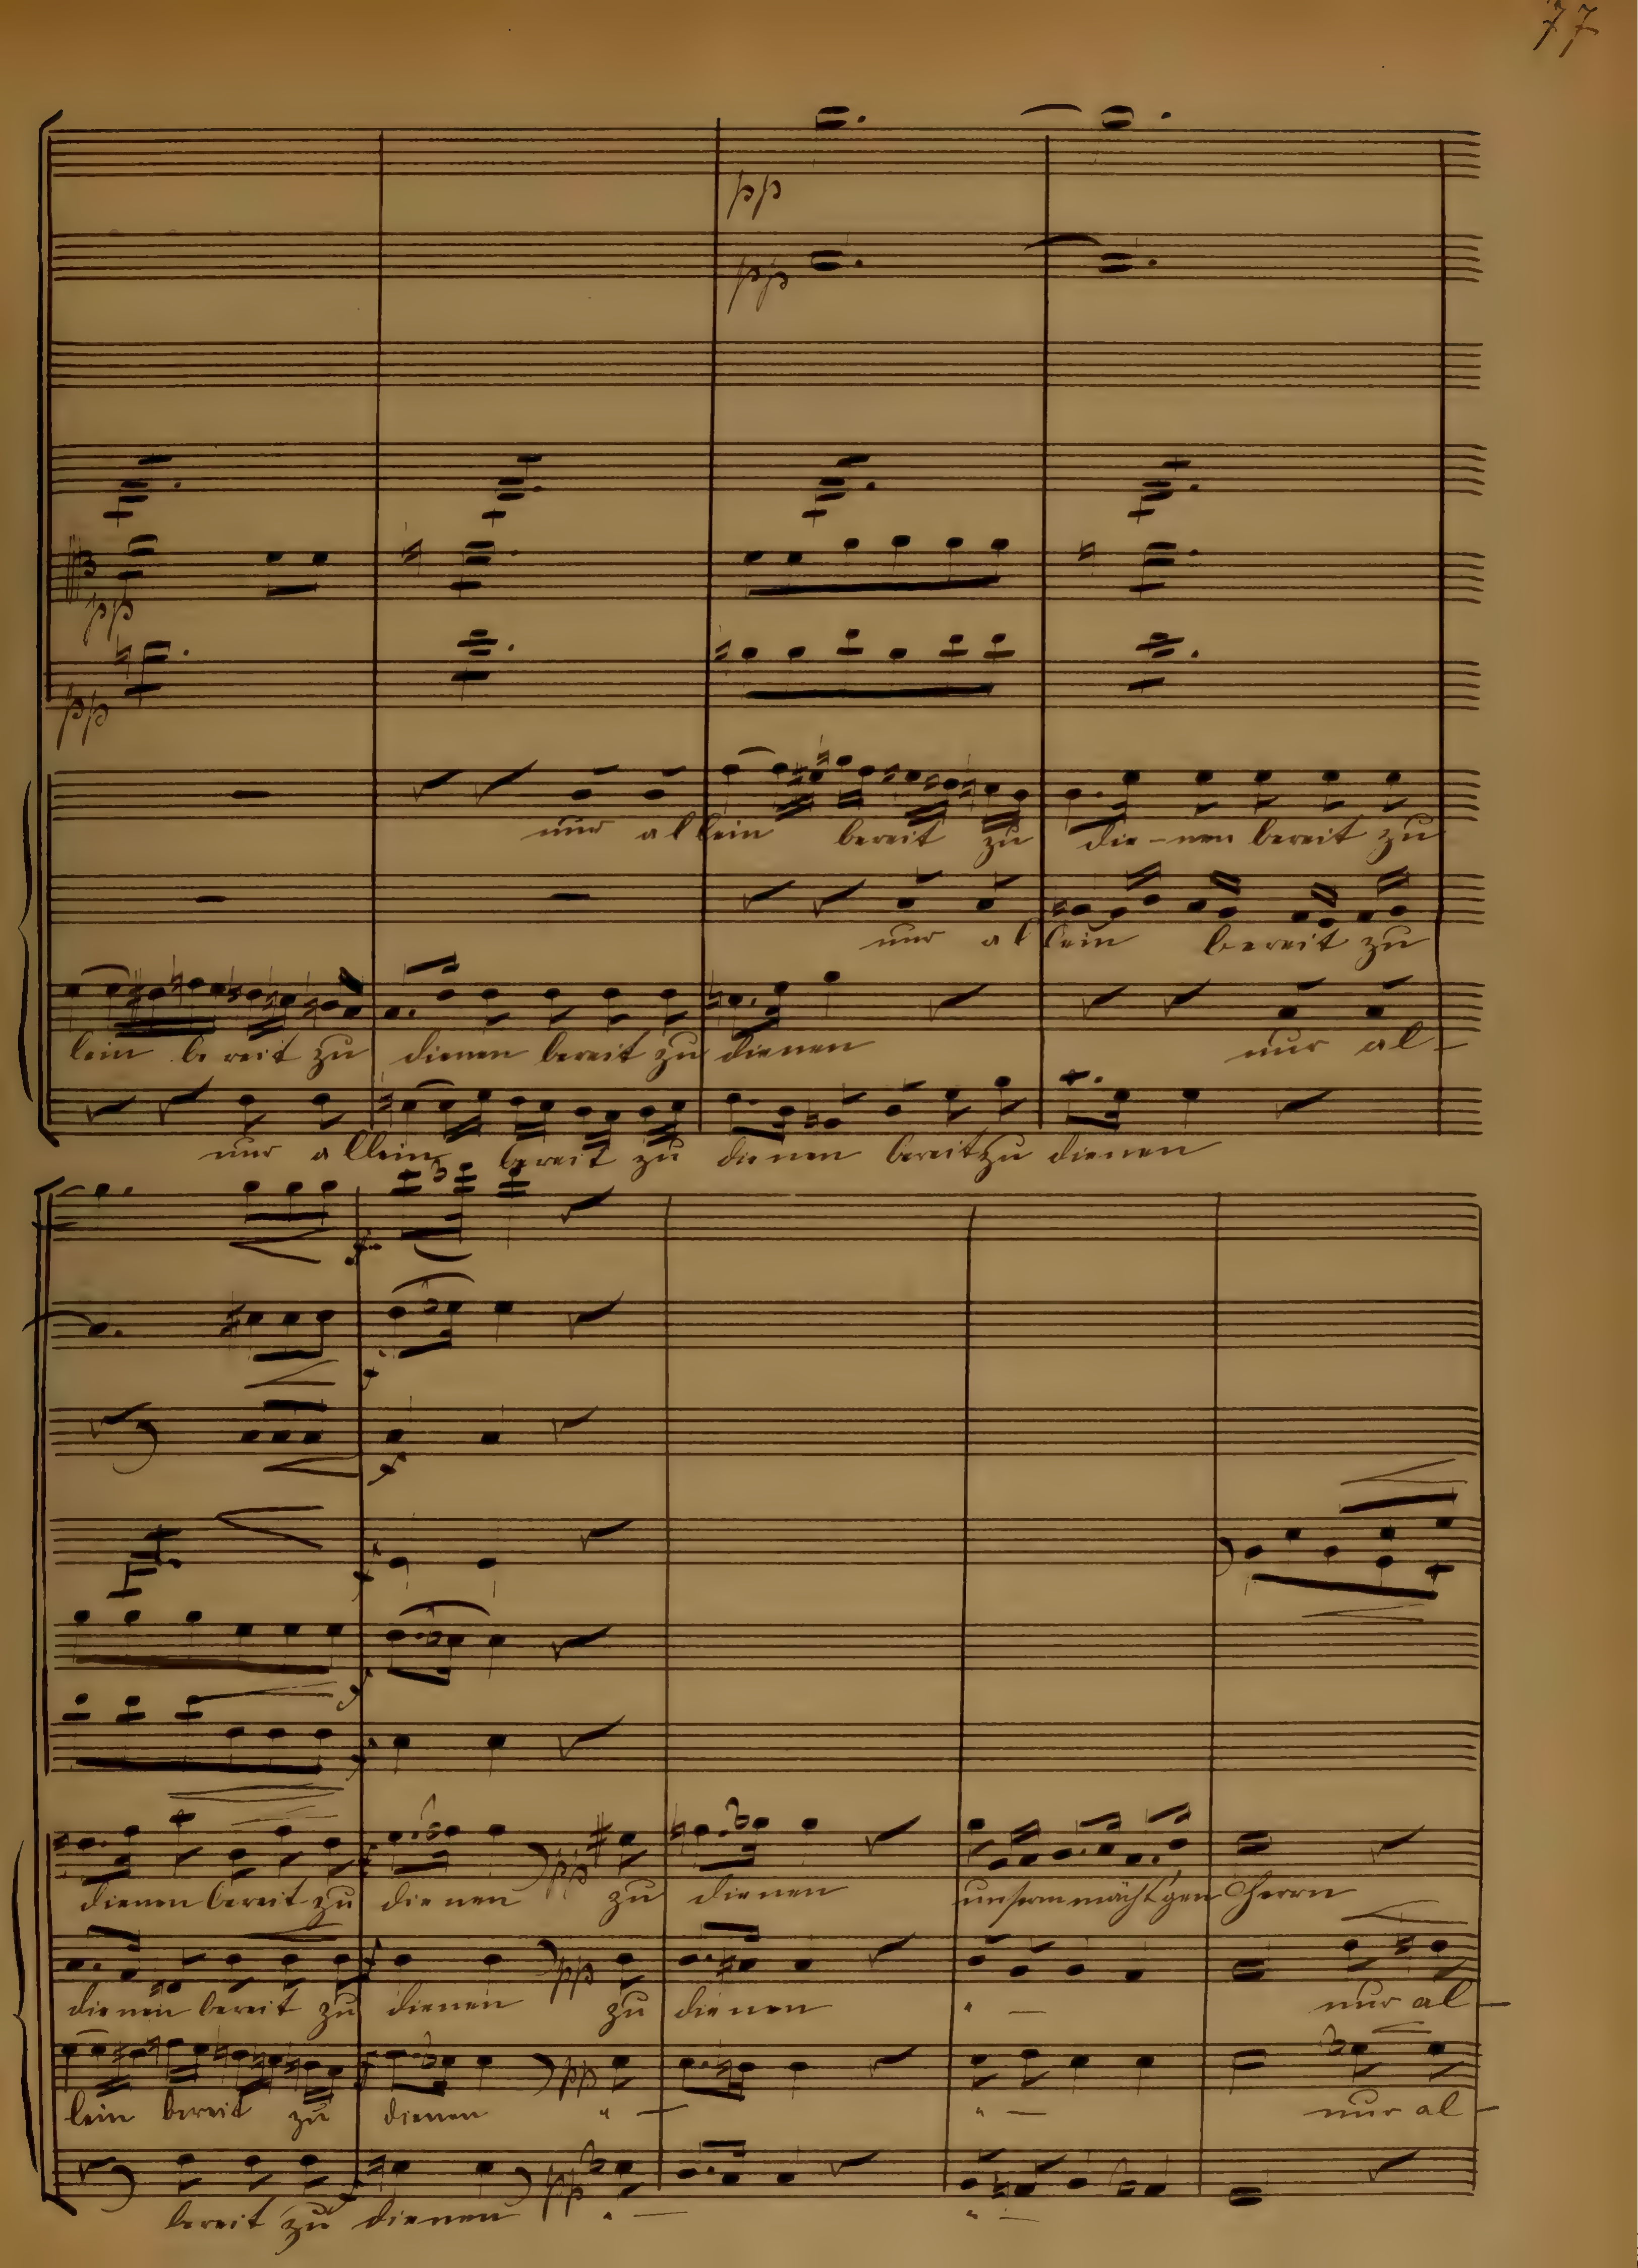 77
pp
pp
pp
pp
nur allein bereit zu die-nen bereit zu
nur allein bereit zu
lein bereit zu dienen bereit zu dienen nur al-
nur allein bereit zu dienen bereit zu dienen
3
f
f
f
f
f
f
dienen bereit zu dienen pp zu dienen unserm mächt'gen Herrn
dienen bereit zu dienen pp zu dienen " — nur al-
lein bereit zu dienen pp " — " — nur al-
bereit zu dienen pp " — " —